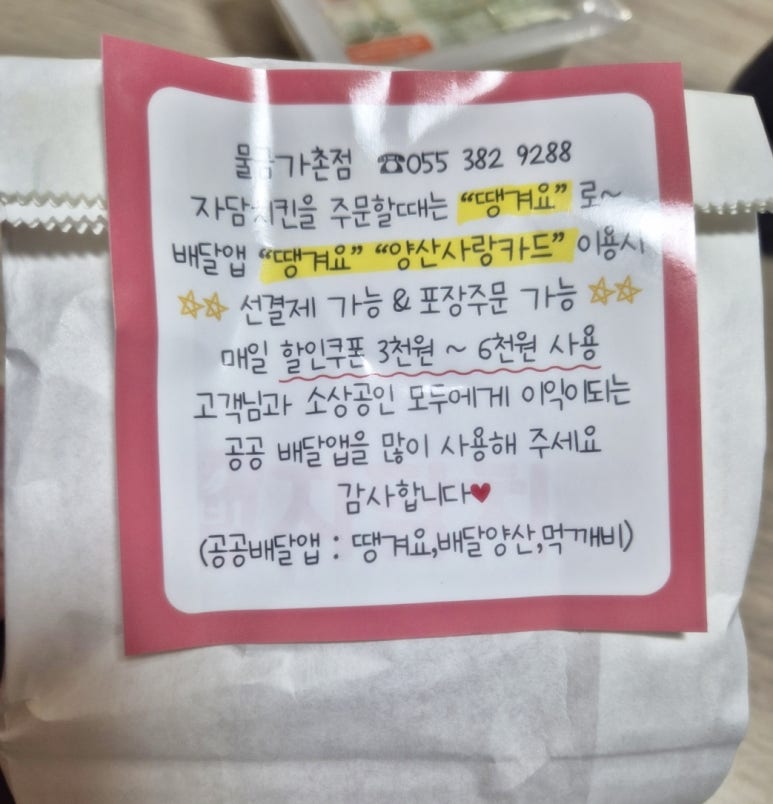 물금가촌점 ☎055 382 9288
자담치킨을 주문할때는 “땡겨요” 로~
배달앱 “땡겨요” “양산사랑카드” 이용시
☆☆ 선결제 가능 & 포장주문 가능 ☆☆
매일 할인쿠폰 3천원 ~ 6천원 사용
고객님과 소상공인 모두에게 이익이되는
공공 배달앱을 많이 사용해 주세요
감사합니다♥
(공공배달앱 : 땡겨요,배달양산,먹깨비)